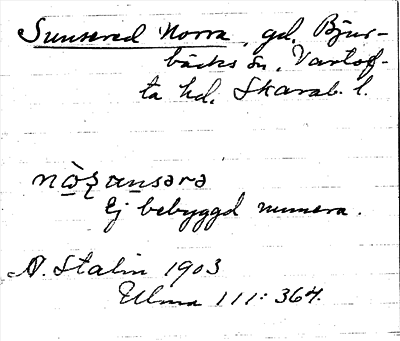 Sunnerad Norra, gd, Bjur-
bäcks sn, Vartof-
ta hd, Skarab. l.
Ej bebyggd numera.
A. Stalin 1903
Ulma 111: 364.